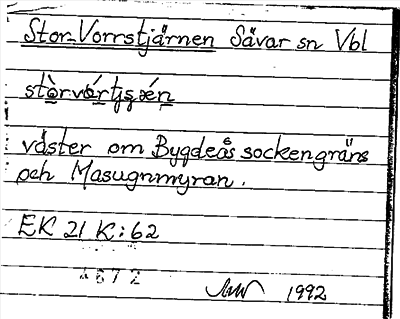 Stor-Vorrstjärnen Sävar sn Vbl
väster om Bygdeås sockengräns
och Masugnmyran.
EK 21 K:62
4672
1992